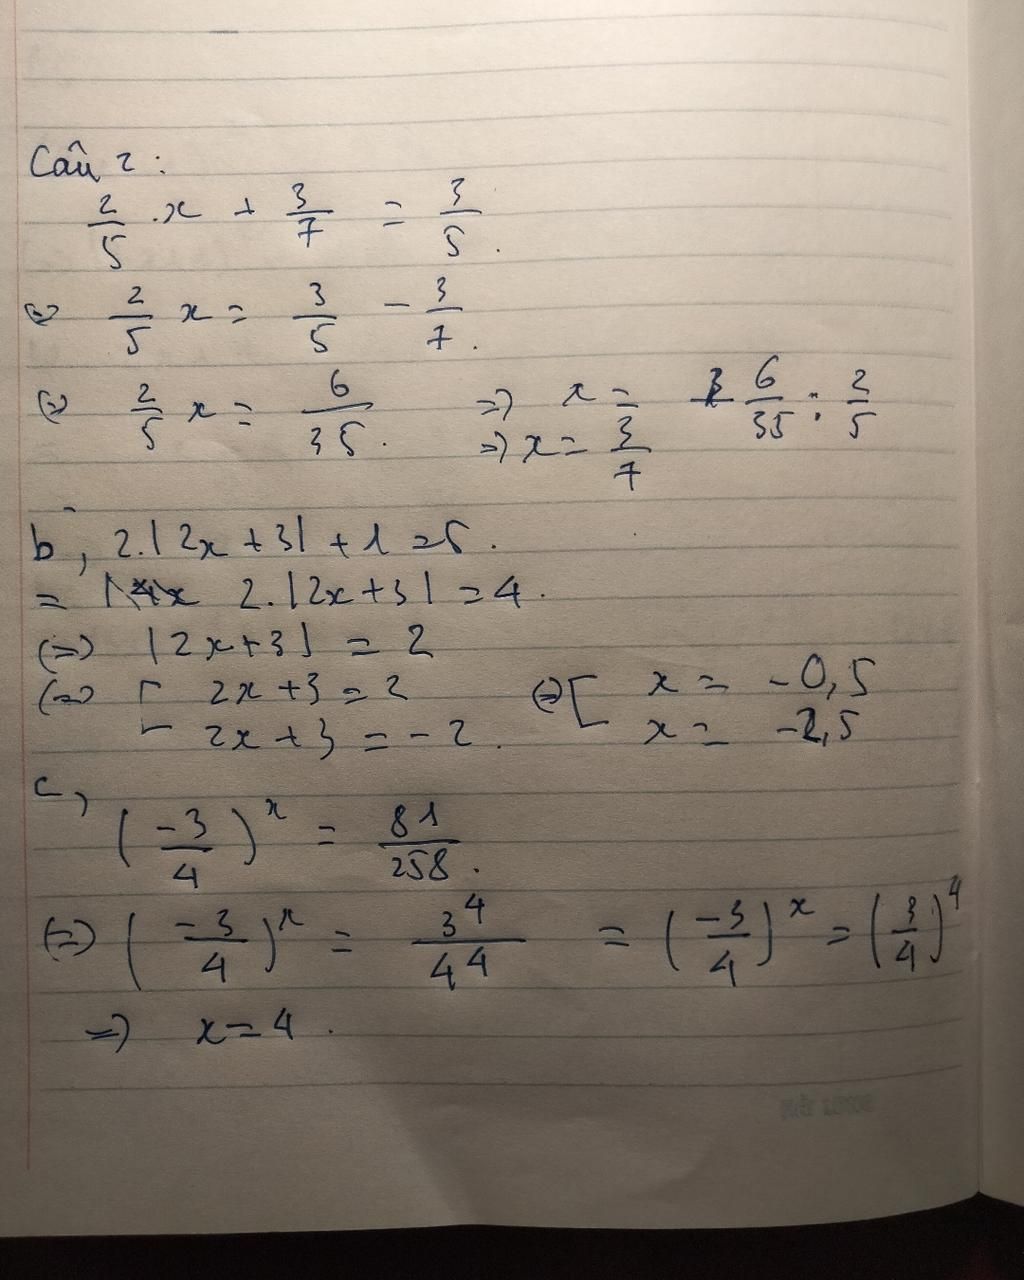 Câu 2:
2/5 .x + 3/7 = 3/5.
(=) 2/5 x = 3/5 - 3/7.
(=) 2/5 x = 6/35. =) x = 6/35 : 2/5
=) x = 3/7
b, 2.|2x+3|+1=5.
= 2.|2x+3|=4.
(=) |2x+3| = 2
(=) [ 2x+3=2 (=) [ x = -0,5
2x+3=-2. x = -2,5
c,
(-3/4)^x = 81/258.
(=) (-3/4)^x = 3^4/4^4 = (-3/4)^x = (3/4)^4
=) x=4.